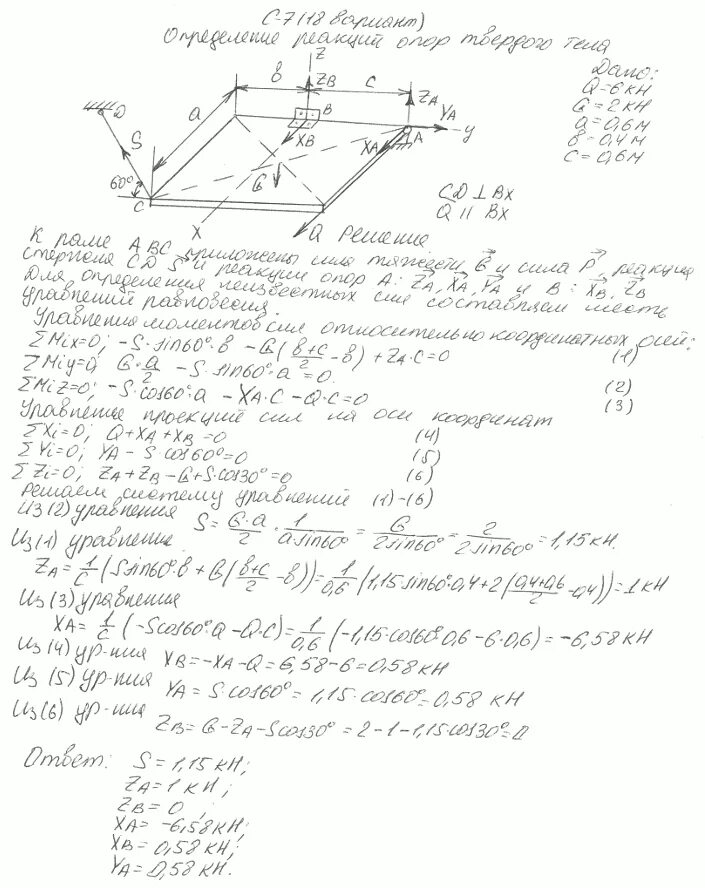 С-7 (18 вариант)
Определение реакций опор твердого тела
Z
в
ZB
с
ZA
YA
y
B
A
XB
XA
a
D
S
60°
C
G
X
Q
Дано:
Q=6кН
G=2кН
a=0,6м
в=0,4м
с=0,6м
CD ⊥ Bx
Q || Bx
Решение
К раме ABC приложены сила тяжести G и сила P, реакция
стержня CD S и реакции опор A: ZA, XA, YA и B: XB, ZB
Для определения неизвестных сил составляем шесть
уравнений равновесия.
Уравнения моментов сил относительно координатных осей:
ΣMix=0; -S·sin60°·в - G((в+с)/2 - в) + ZA·с=0 (1)
ΣMiy=0; G·a/2 - S·sin60°·a = 0. (2)
ΣMiz=0; -S·cos60°·a - XA·с - Q·с=0 (3)
Уравнение проекций сил на оси координат
ΣXi=0; Q+XA+XB=0 (4)
ΣYi=0; YA - S·cos60°=0 (5)
ΣZi=0; ZA+ZB-G+S·cos30°=0 (6)
Решаем систему уравнений (1)-(6)
Из (2) уравнения S = G·a/2 · 1/(a sin60°) = G/(2sin60°) = 2/(2sin60°) = 1,15 кН.
Из (1) уравнение
ZA = 1/с (S sin60°·в + G((в+с)/2 - в)) = 1/0,6 (1,15 sin60°·0,4+2((0,4+0,6)/2 - 0,4)) = 1 кН
Из (3) уравнения
XA = 1/с (-S cos60°·a - Q·с) = 1/0,6 (-1,15·cos60°·0,6 - 6·0,6) = -6,58 кН
Из (4) ур-ния XB = -XA - Q = 6,58-6 = 0,58 кН
Из (5) ур-ния YA = S·cos60° = 1,15·cos60° = 0,58 кН
Из (6) ур-ния ZB = G - ZA - S cos30° = 2-1-1,15cos30° = 0
Ответ: S = 1,15 кН;
ZA = 1 кН;
ZB = 0 ;
XA = -6,58 кН;
XB = 0,58 кН;
YA = 0,58 кН.